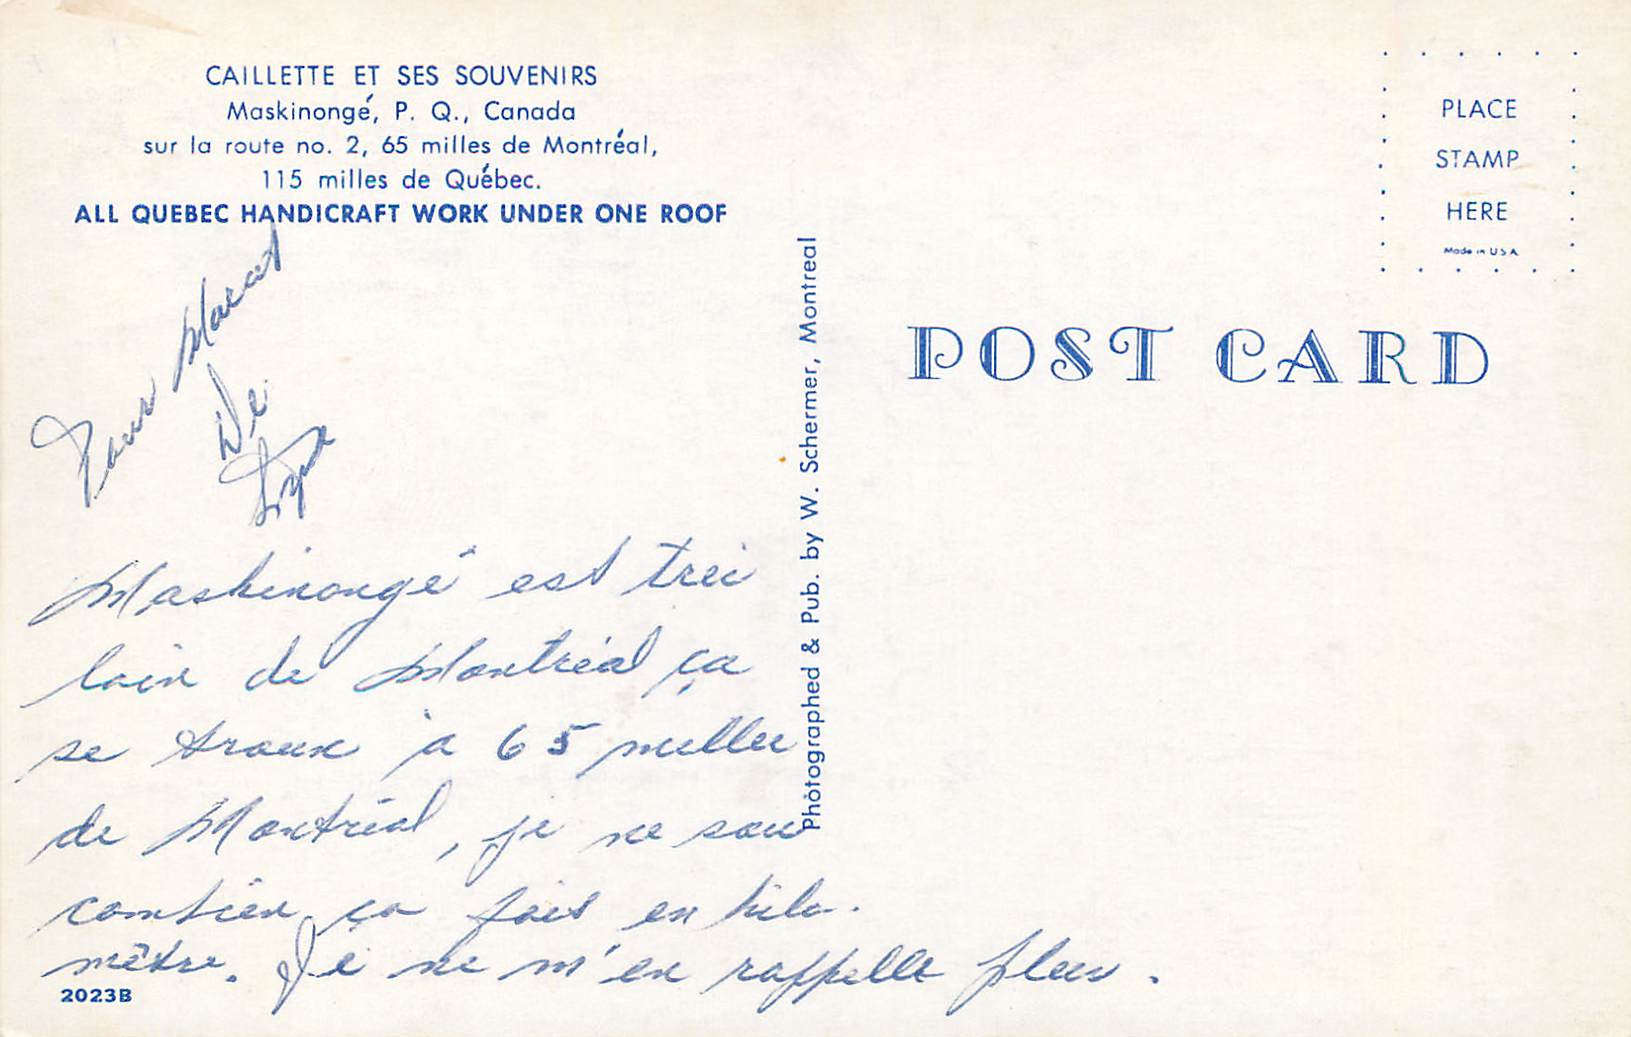 CAILLETTE ET SES SOUVENIRS
Maskinongé, P. Q., Canada
sur la route no. 2, 65 milles de Montréal,
115 milles de Québec.
ALL QUEBEC HANDICRAFT WORK UNDER ONE ROOF
PLACE
STAMP
HERE
Made in U.S.A.
POST CARD
Photographed & Pub. by W. Schermer, Montreal
Pour Marcel
De
Maskinongé est trés
loin de Montréal ça
se trouve à 65 milles
de Montréal, je ne sais
combien ça fais en kilo-
mètre. Je ne m'en rappelle plus.
2023B